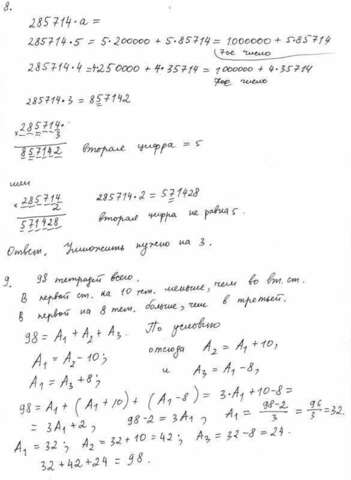 8.
285714 · a =
285714 · 5 = 5 · 200000 + 5 · 85714 = 1000000 + 5 · 85714
7ое число
285714 · 4 = 4 · 250000 + 4 · 35714 = 1000000 + 4 · 35714
7ое число
285714 · 3 = 857142
× 285714
3
857142
вторая цифра = 5
или
× 285714
2
571428
285714 · 2 = 571428
вторая цифра не равна 5.
Ответ. Умножить нужно на 3.
9. 98 тетрадей всего.
В первой ст. на 10 тет. меньше, чем во вт. ст.
В первой на 8 тет. больше, чем в третьей.
98 = A₁ + A₂ + A₃. По условию
A₁ = A₂ - 10; отсюда A₂ = A₁ + 10,
A₁ = A₃ + 8; и A₃ = A₁ - 8,
98 = A₁ + (A₁ + 10) + (A₁ - 8) = 3 · A₁ + 10 - 8 =
= 3A₁ + 2, 98 - 2 = 3A₁, A₁ = 98-2/3 = 96/3 = 32.
A₁ = 32; A₂ = 32 + 10 = 42; A₃ = 32 - 8 = 24.
32 + 42 + 24 = 98.